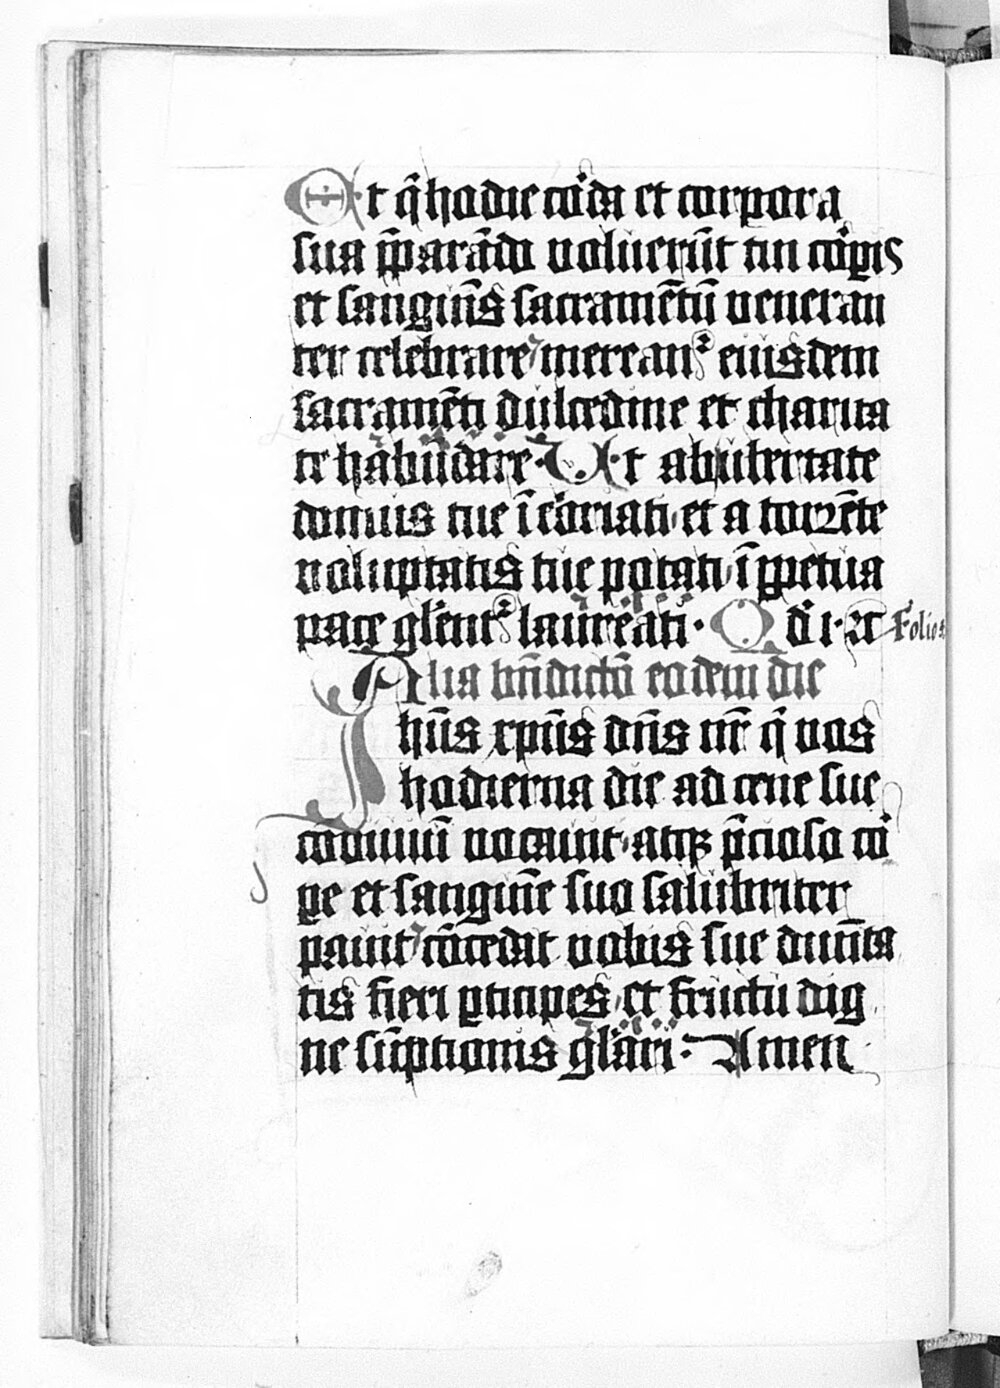 Et q̄ hodie cōrda et corpora
sua p̄parādo voluerūt tui cōrpis
et sanguīs sacramētū veneran
ter celebrare mereanͬ eiusdem
sacramēti dulcedine et charita
te habūdare · Ut ab ubertate
domus tue ī ebriati et a torrēte
voluptatis tue potati ī ꝑpetua
pace gl̄ient laureati · Q d̄ i · ꝛc̄ Folio
Alia bn̄dictō eodem die
Ihūs xpūs dn̄s nr̄ q̄ vos
hodierna die ad cene sue
cōviuiū vocauit atqꝫ p̄cioso cor
ꝑe et sanguīe suo salubriter
pauit cōcedat vobis sue diuīta
tis fieri ꝑticipes et fructū dig
ne sūptionis gl̄ari · Amen